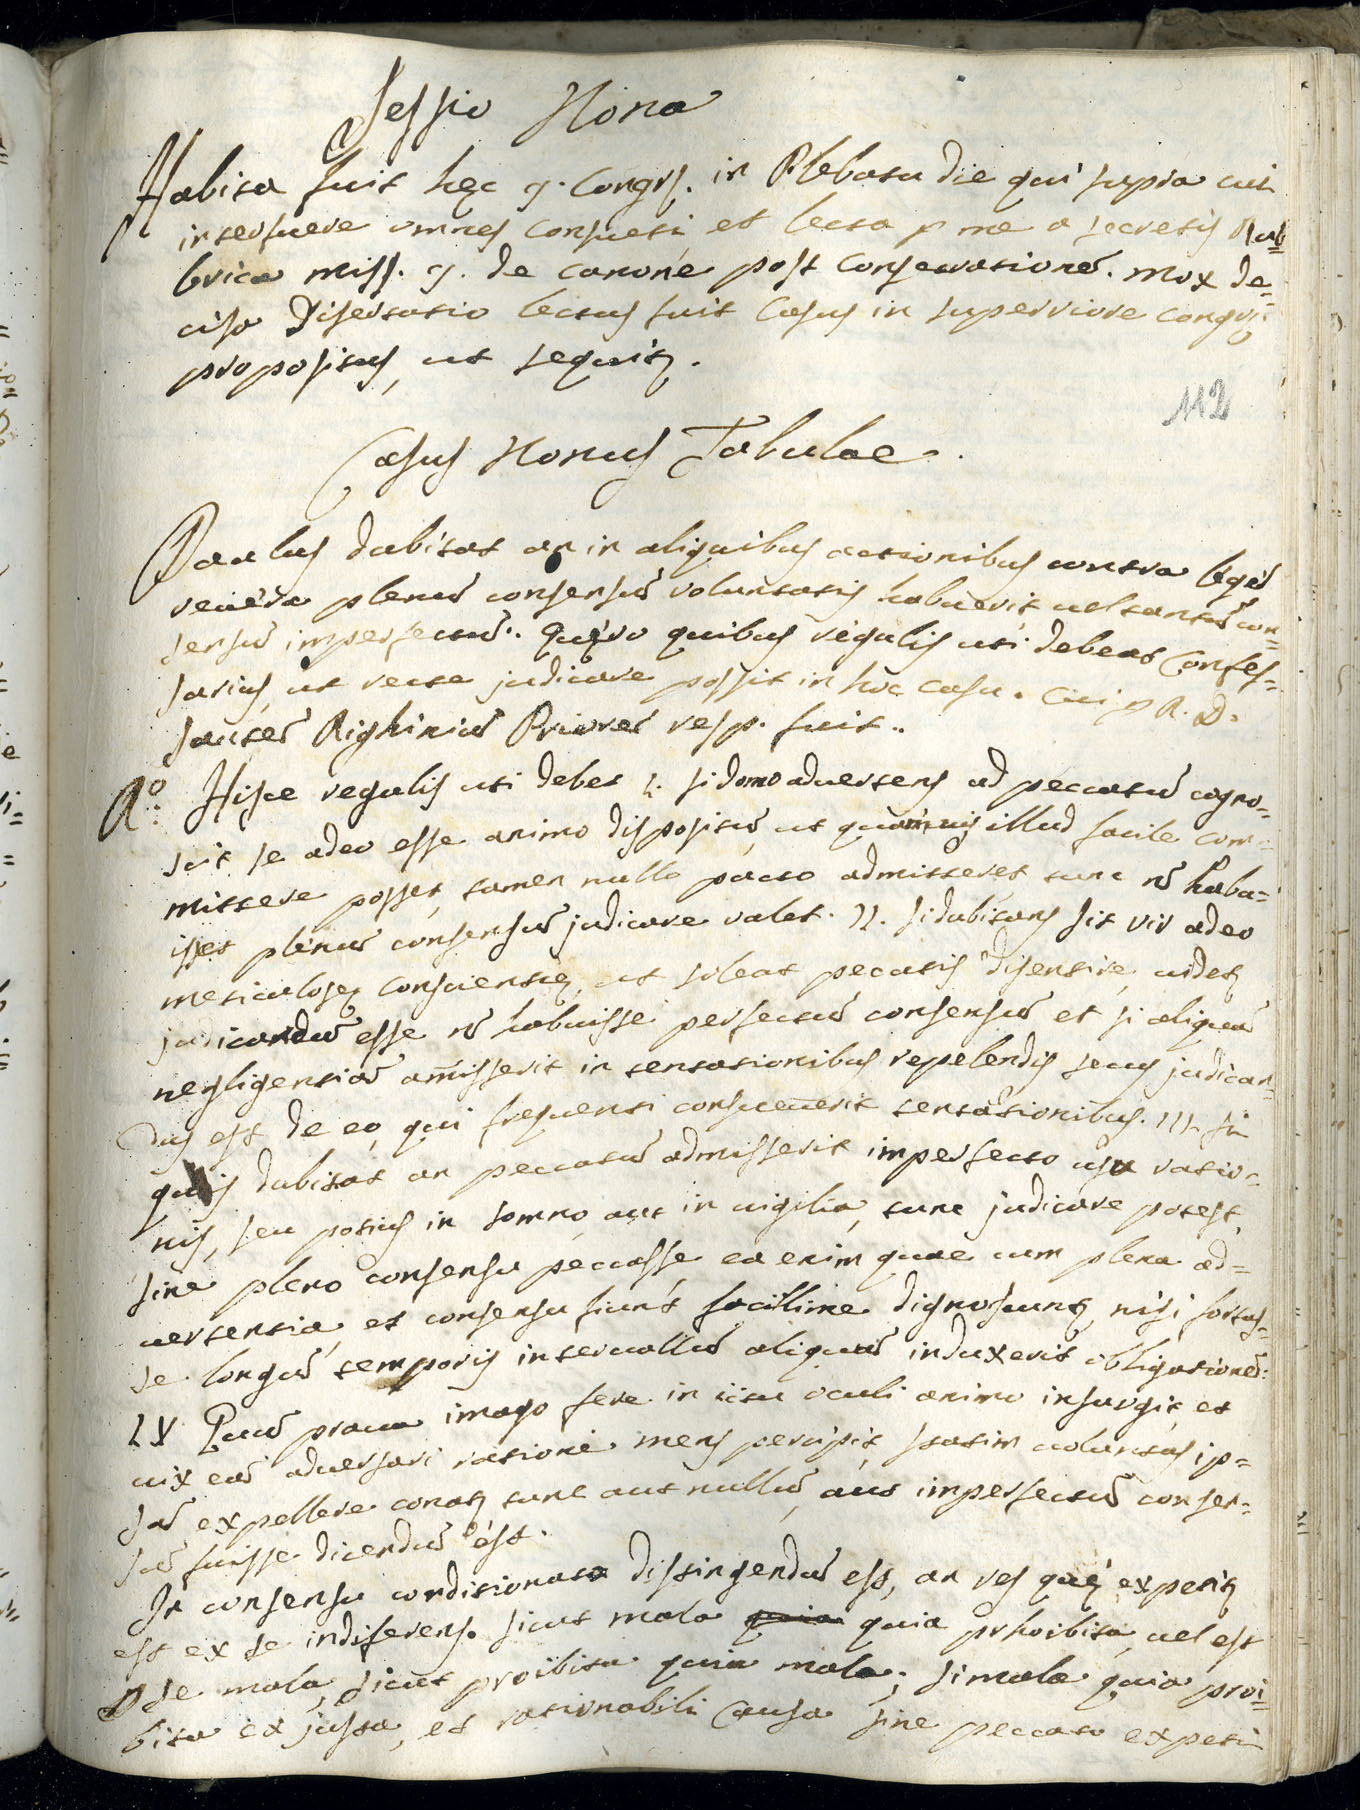 Sessio Nona
Habita fuit hęc 9. Congrs. in Plebatu die qui supra cui
interfuere omnes consueti et lecta p me a secretis Ru=
brica miss. 9. de canone post consecrationē. Mox de=
cisa disertatio lectus fuit Casus in superriore congris
propositus, ut sequitr.
112
Casus Nonus Tabulae.
Paulus dubitat an in aliquibus actionibus contra legē
reuera plenū consensū voluntatis habuerit uel tantū con=
sensū imperfectū. Quęro quibus regulis uti debeat Confes=
sarius, ut recte judicare possit in hoc casu. Cui p R. D.
Santē Righiniū Priorē resp. fuit.
Ro. Hisce regulis uti debet I. si domo aduertens ad peccatū cogno=
scit se adeo esse animo dispositū, ut quāmuis illud facile com=
mittere posset, tamen nullo pacto admitteret tunc nō haba=
isset plenū consensū judicare valet. II. si dubitans sit vir adeo
meticulosę conscientię, ut soleat pecatis disentire, uidetr
judicandū esse nō habuisse perfectū consensū et si aliquā
negligentiā amisserit in tentationibus repelendis secus judican=
dus est de eo, qui frequenti consueuerit tentationibus. III. si
quis dubitat an peccatū admisserit imperfecto usu ratio=
nis, seu potius in somno, aut in uigilia, tunc judicare potest,
sine pleno consensu peccasse ea enim quae cum plena ad=
uertentia, et consensu fiunt facillime dignoscuntr, nisi fortas=
se longū temporis interuallū aliquā induxerit obligationē.
IV Quū praua imago fere in ictu oculi animo insurgit, et
uix eā aduersari rationi mens percipit, statim uoluntas ip=
sā expellere conatr tunc aut nullū, aut imperfectū consen=
sū fuisse dicendū est.
In consensu conditionato distingendū est, an res quę expetitr
est ex se indiferens. sicut mala quia prhoibita, uel est
p se mala, sicut proibita quia mala; si mala quia proi=
bita ex justa, et rationabili causa sine peccato expeti